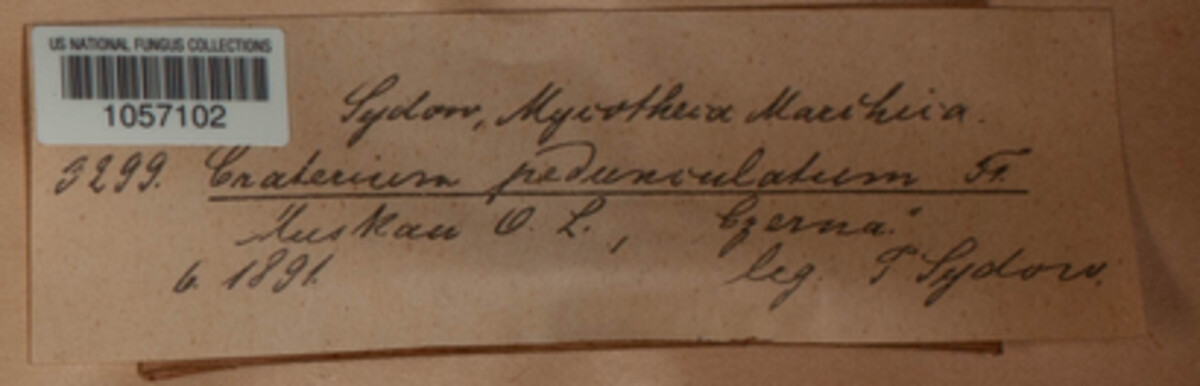 US NATIONAL FUNGUS COLLECTIONS
1057102
Sydow, Mycotheca Marchica.
3299. Craterium pedunculatum Fr.
Muskau O. L., "Czerna."
6. 1891. leg. P Sydow.